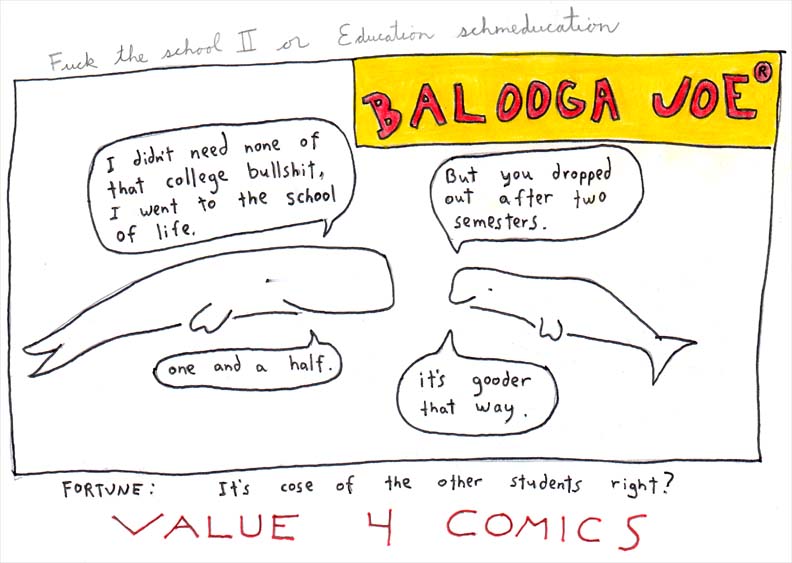 Fuck the school II or Education schmeducation
BALOOGA JOE®
I didn't need none of
that college bullshit,
I went to the school
of life.
But you dropped
out after two
semesters.
one and a half.
it's gooder
that way.
FORTUNE: It's cose of the other students right?
VALUE 4 COMICS